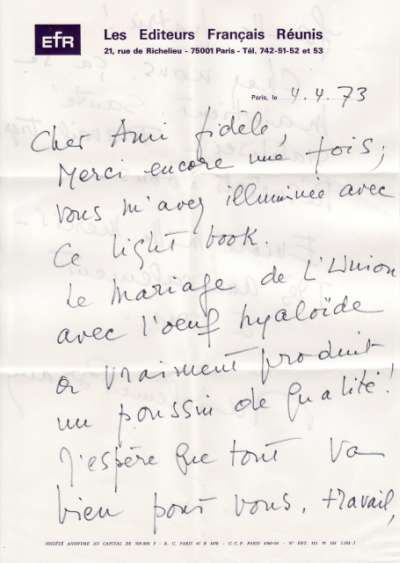 EFR
Les Editeurs Français Réunis
21, rue de Richelieu - 75001 Paris - Tél. 742-51-52 et 53
Paris, le 4.4.73
Cher Ami fidèle,
Merci encore une fois,
vous m'avez illuminée avec
ce light book.
Le Mariage de L'Union
avec l'oeuf hyaloïde
a vraiment produit
un poussin de qualité!
J'espère que tout va
bien pour vous, travail,
SOCIÉTÉ ANONYME AU CAPITAL DE